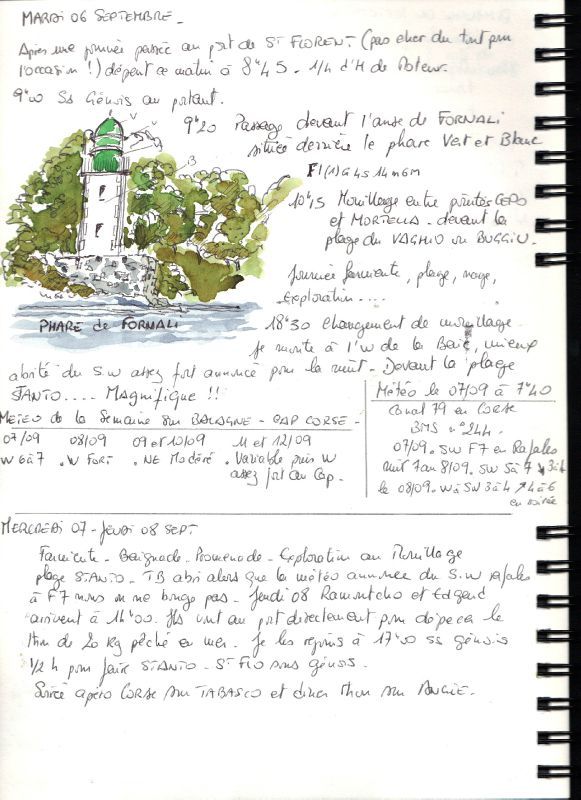 MARDI 06 SEPTEMBRE -
Après une journée passée au port de ST FLORENT (pas cher du tout pour
l'occasion !) départ ce matin à 8h45 - 1/4 d'H de Moteur.
9h00 Ss Génois au portant.
9h20 Passage devant l'anse de FORNALI
située derrière le phare Vert et Blanc
Fl (1) G 4s 14m 6M
10h15 Mouillage entre pointes CEPO
et MORTELLA - devant la
plage du VAGHIO ou BUGGIU.
PHARE de FORNALI
Journée farniente, plage, nage,
Exploration ....
18h30 Changement de mouillage
Je monte à l'W de la Baie, mieux
abrité du S.W assez fort annoncé pour la nuit - Devant la plage
STANTO .... MAGNIFIQUE !!
METEO de la Semaine sur BALAGNE - CAP CORSE -
07/09 08/09 09 et 10/09 11 et 12/09
W 6 à 7 . W FORT . NE Modéré . Variable puis W
assez fort au Cap.
Météo le 07/09 à 7h40
Canal 79 en CORSE
BMS n° 244.
07/09. SW F7 en Rafales
nuit 7 au 8/09. SW 5 à 7 ↘ 3 à 4
le 08/09. W à SW 3 à 4 ↗ 4 à 6
en soirée
MERCREDI 07 - JEUDI 08 SEPT
Farniente - Baignade - Promenade - Exploration au Mouillage
plage STANTO - TB abri alors que la météo annonce du S.W rafales
à F7 nous on ne bouge pas. Jeudi 08 Ramuntcho et Edgard
arrivent à 14h00. Ils vont au port directement pour dépecer le
thon de 20 kg pêché en mer. Je les rejoins à 17h00 ss génois
1/2 h pour faire STANTO - ST FLO sous génois.
Soirée apéro CORSE sur TABASCO et diner thon sur